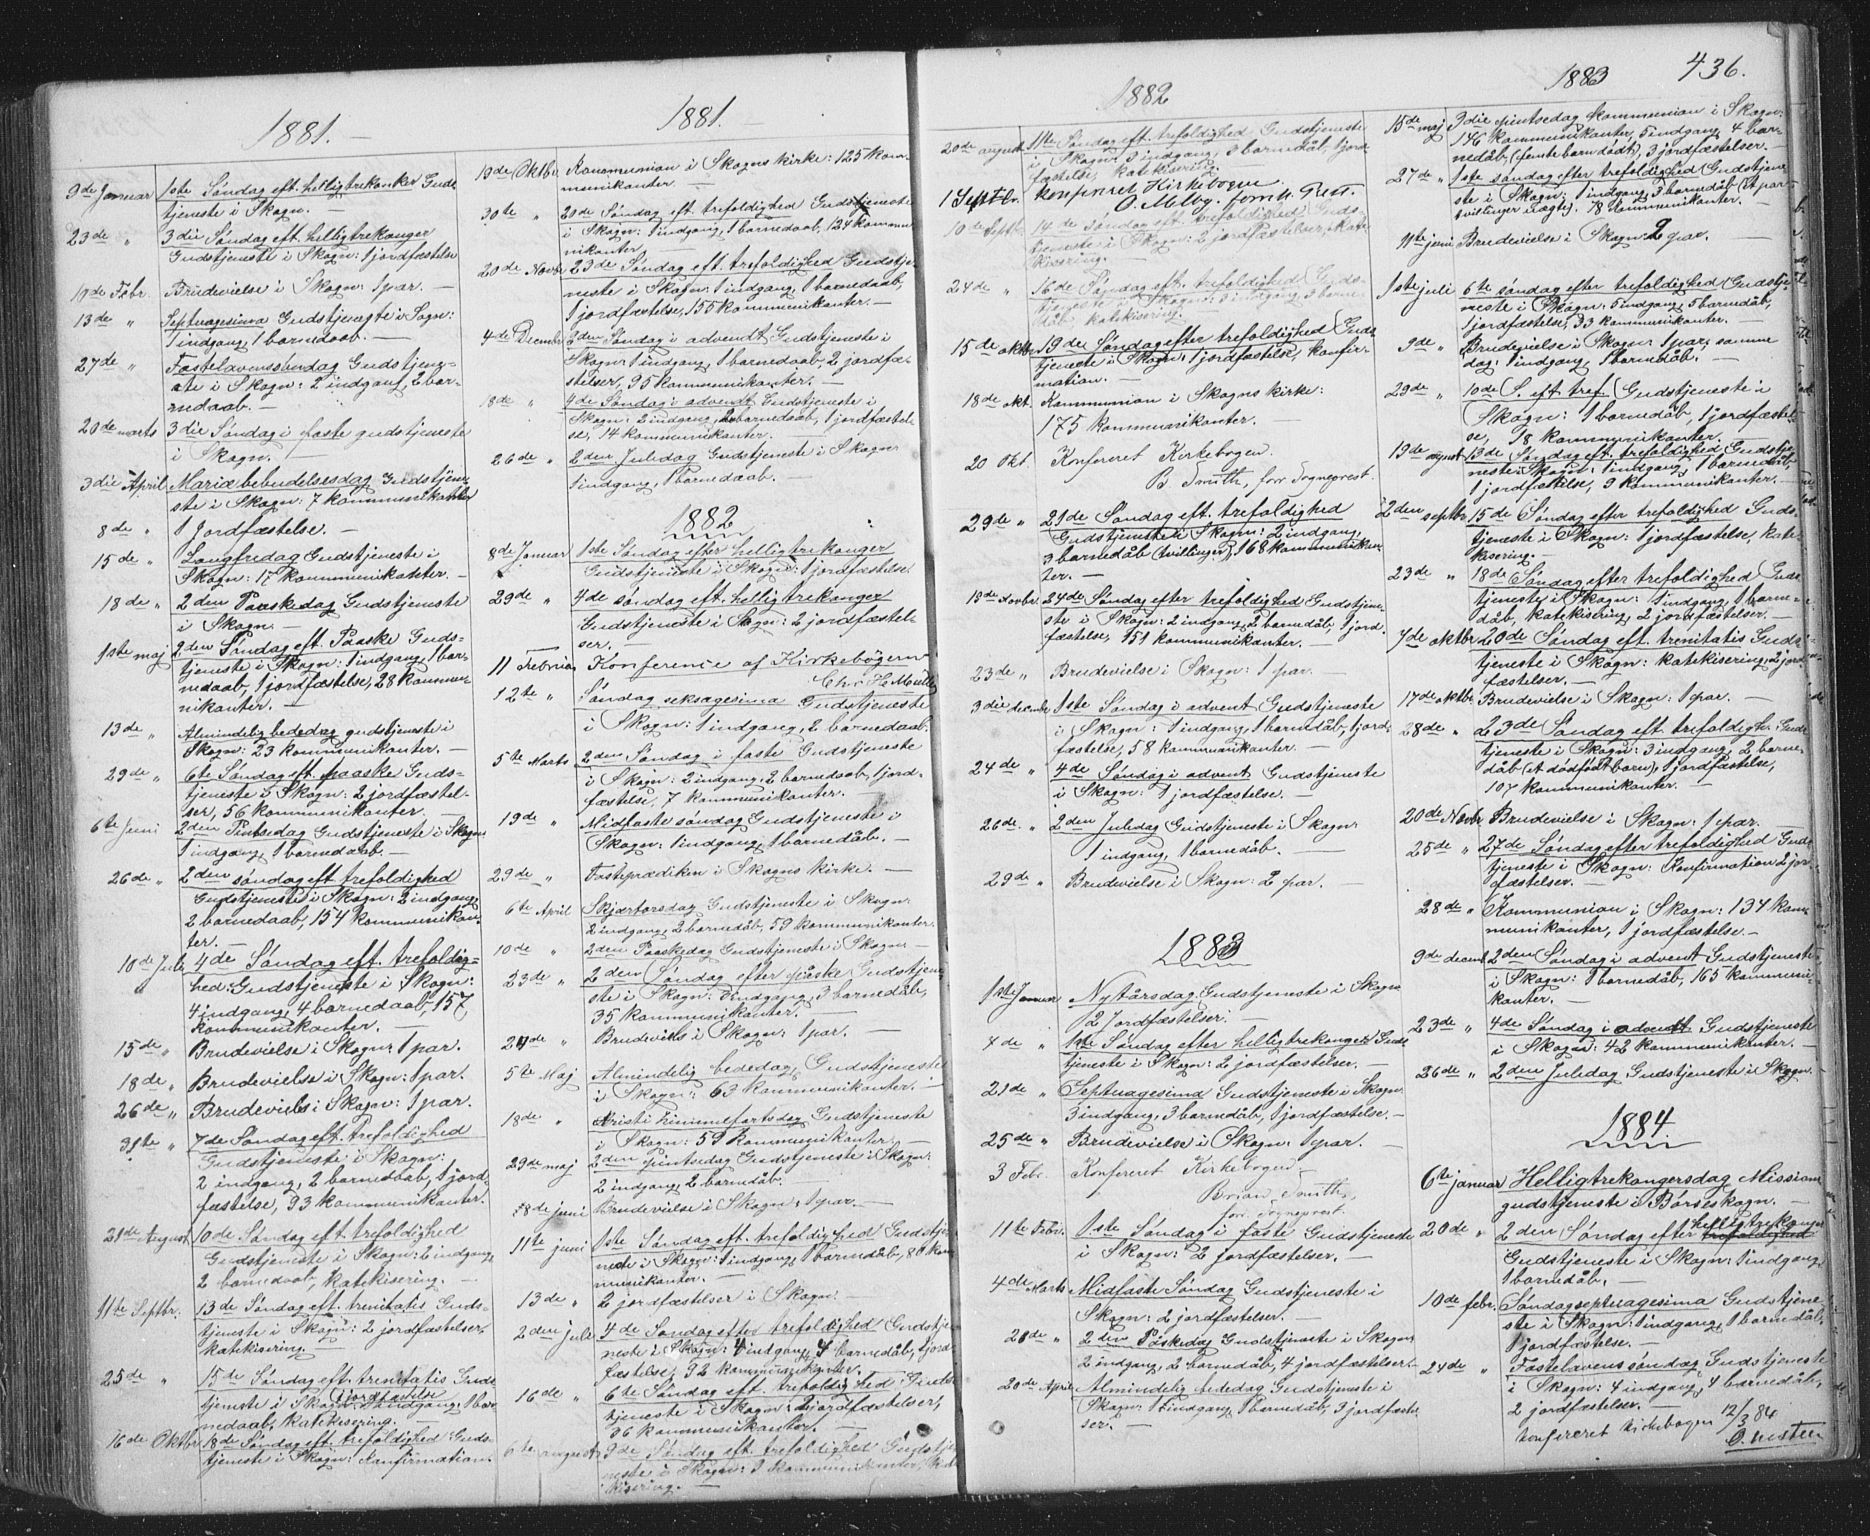 1881. —
9de Januar 1ste Søndag eft. helligtrekonker Guds
tjeneste i Skogn. —
23de " 3die Søndag eft. helligtrekonger
Gudstjeneste i Skogn: 1 jordfæstelse
19de Febr. Brudevielse i Skogn: 1 par. —
13de " Septuagesima Gudstjenegte i Sogn:
1 indgang, 1 barnedaab. —
27de " Fastelavenssøndag Gudstjeng-
ste i Skogn: 2 indgang, 2 bar-
nedaab. —
20de marts 3die Søndag i faste gudstjeneste
i Skogn. —
3die April Mariæbebudelsesdag Gudstjene-
ste i Skogn: 7 kommunikanter
8de " 1 Jordfæstelse. —
15de " Langfredag Gudstjeneste i
Skogn: 17 kommunikanter. —
18de " 2den Paaskedag Gudstjeneste
i Skogn. —
1ste maj 2den Søndag eft. Paaske Guds-
tjeneste i Skogn: 1 indgang, 1 bar-
nedaab, 1 jordfæstelse, 28 kommu-
nikanter. —
13de " Almindelig bededag gudstjeneste i
Skogn: 23 kommunikanter. —
29de " 6te Søndag eft. paaske Guds-
tjeneste i Skogn: 2 jordfæstel-
ser, 56 kommunikanter. —
6te Juni 2den Pintsedag Gudstjeneste i Skogn
1 indgang, 1 barnedaab. —
26de " 2den søndag eft. trefoldighed
Gudstjeneste i Skogn: 2 indgang,
2 barnedaab, 154 kommunikan-
ter. —
10de Juli 4de Søndag eft. trefoldig-
hed: Gudstjeneste i Skogn:
4 indgang, 4 barnedaab, 157
kommunikanter. —
15de " Brudevielse i Skogn: 1 par. —
18de " Brudevielse i Skogn: 1 par. —
26de " Brudeviels i Skogn: 1 par. —
31te " 7de Søndag eft. trefoldighed
Gudstjeneste i Skogn:
2 indgang, 2 barnedaab, 1 jord-
fæstelse, 93 kommunikanter.
21de August 10de Søndag eft. trefoldighed
Gudstjeneste i Skogn: 2 indgang,
2 barnedaab, Katekisering. —
11te Septbr. 13de Søndag eft. trenitatis Guds-
tjeneste i Skogn: 2 jordfæstelser,
katekisering. —
25de " 15de Søndag eft. trenitatis Guds
1 jordfæstelse
tjeneste i Skogn: 1 indgang, 1 bar-
nedaab, Katekisering. —
16de Oktbr 18de Søndag eft. trefoldighed Guds-
tjeneste i Skogn: Konfirmation.
1881. —
19de Oktbr Kommunion i Skogns kirke: 125 kom-
munikanter. —
30te " 20de Søndag eft. trefoldighed Gudstjeneste
i Skogn: 1 indgang, 1 barnedaab, 124 kommu-
nikanter. —
20de Novbr 23de Søndag eft. trefoldighed Gudstje-
neste i Skogn: 1 indgang, 1 barnedaab,
1 jordfæstelse, 155 kommunikanter. —
4de Decembr 2den Søndag i advendt Gudstjeneste i
Skogn: 1 indgang, 1 barnedaab, 2 jordfæ-
stelser, 95 kommunikanter. —
18de " 4de Søndag i advendt Gudstjeneste i
Skogn: 2 indgang, 2 barnedaab, 1 jordfæstel-
se, 14 kommunikanter. —
26de " 2den Juledag Gudstjeneste i Skogn
1 indgang, 1 barnedaab. —
1882
8de Januar 1ste Søndag efter helligtrekonger
Gudstjeneste i Skogn: 1 jordfæstelse
29de " 4de søndag eft. helligtrekonger
Gudstjeneste i Skogn: 2 jordfæstel-
ser. —
11 Februar Konference af Kirkebogen
Chr. H. Müller
12te " Søndag seksagesima Gudstjeneste
i Skogn: 1 indgang, 2 barnedaab.
5te Marts 2den Søndag i faste Gudstjeneste
i Skogn: 2 indgang, 2 barnedaab, 1 jord-
fæstelse, 7 kommunikanter. —
19de " Midfaste søndag Gudstjeneste i
Skogn: 1 indgang, 1 barnedåb. —
29de " Fasteprædiken i Skogns kirke. —
6te April Skjærtorsdag Gudstjeneste i Skogn:
2 indgang, 2 barnedåb, 59 kommunikanter. —
10de " 2den Paaskedag Gudstjeneste i Skogn —
23de " 2den Søndag efter påske Gudstjene-
ste i Skogn: 3 indgang, 3 barnedåb,
35 kommunikanter. —
24de " Brudeviels i Skogn: 1 par. —
5te Maj Almindelig bededag Gudstjeneste
i Skogn: 63 kommunikanter. —
18de " Kristi himmelfartsdag Gudstjeneste
i Skogn: 59 kommunikanter. —
29de maj 2den pintsedag Gudstjeneste i Skogn:
2 indgang, 2 barnedåb.
8de juni Brudevielse i Skogn: 1 par. —
11te juni 1ste Søndag eft. trefoldighed Gudstje
neste i Skogn: 1 indgang, 1 barnedåb, 80 kom-
munikanter. —
13de " 2 jordfæstelser i Skogn. —
2den juli 4de Søndag efter trefoldighed Gudstje-
neste i Skogn: 4 indgang, 4 barnedåb, 1 jord-
fæstelse, 92 kommunikanter.
16de " 6te Søndag eft. trefoldighed Guds
tjeneste i Skogn: jordfæstelser,
96 kommunikanter. —
6te august 9de Søndag eft. trefoldighed Gudstje-
neste i Skogn: 9 kommunikanter, kate
kisering. —
1882
20de august 11te Søndag eft. trefoldighed Gudstjeneste
i Skogn: 3 indgang, 3 barnedåb, 1 jord-
fæstelse, katekisering. —
1 Septbr. konfereret Kirkebogen
O. Melby. fomh. Præst.
10de Septbr 14de Søndag eft. trefoldighed Guds-
tjeneste i Skogn: 2 jordfæstelser, kate
kisering. —
24de " 16de Søndag eft. trefoldighed Guds-
tjeneste i Skogn: 3 indgang, 3 barne-
dåb katekisering. —
15de oktbr 19de Søndag efter trefoldighed Guds
tjeneste i Skogn: 1 jordfæstelse, konfir-
mation. —
18de okt. Kommunion i Skogns kirke:
175 kommunikanter. —
20 Okt. Konfereret Kirkebogen.
B. Smith, forr. Sogneprest.
29de " 21de Søndag eft. trefoldighed
Gudstjeneste i Skogn: 2 indgang,
3 barnedåb (tvillinger), 168 kommunikan
ter. —
19de Novbr. 24de Søndag efter trefoldighed Gudstjene-
ste i Skogn: 2 indgang, 2 barnedåb, 1 jord-
fæstelse, 151 kommunikanter. —
23de " Brudevielse i Skogn: 1 par —
3die decembr 1ste Søndag i advent Gudstjeneste
i Skogn: 1 indgang, 1 barnedåb, 1 jord-
fæstelse, 58 kommunikanter. —
24de " 4de Søndag i advent Gudstjeneste
i Skogn: 1 jordfæstelse. —
26de " 2den Juledag Gudstjeneste i Skogn
1 indgang, 1 barnedåb. —
29de " Brudevielse i Skogn: 2 par. —
1883
1ste Januar Nytårsdag Gudstjeneste i Skogn
2 Jordfæstelser. —
7de " 1ste Søndag efter helligtrekonger Guds
tjeneste i Skogn: 2 jordfæstelser. —
21de " Septuagesima Gudstjeneste i Skogn
3 indgang, 3 barnedåb, 1 jordfæstelse. —
25de " Brudevielse i Skogn: 1 par. —
3 Febr. Konfereret Kirkebogen —
Brian Smith,
forr. Sogneprest.
11te Febr. 1ste Søndag i faste Gudstjeneste
i Skogn: 2 jordfæstelser. —
4de Marts Midfaste Søndag Gudstjeneste i
Skogn: 2 jordfæstelser. —
26de " 2den Påskedag Gudstjeneste i Skogn
2 indgang, 2 barnedåb, 4 jordfæstelser. —
20de April Almindelig bededag Gudstjeneste i
Skogn: 1 indgang, 1 barnedåb, 3 jordfæstel
ser. —
1883 436.
15de maj 3die pintsedag Kommunion i Skogn:
146 kommunikanter, 5 indgang, 4 bar-
nedåb, (femte barn dødt), 3 jordfæstelser. —
27de " 1ste søndag efter trefoldighed Gudstjene
ste i Skogn: 1 indgang, 3 barnedåb (et par
tvillinger uægte), 78 kommunikanter. —
11te juni Brudevielse i Skogn: 2 par. —
1ste juli 6te søndag efter trefoldighed Gudstje-
neste i Skogn: 5 indgang, 5 barnedåb,
1 jordfæstelse, 33 kommunikanter. —
9de " Brudevielse i Skogn: 1 par, samme
dag 1 indgang, 1 barnedåb. —
29de " 10de S. eft tref. Gudstjeneste i
Skogn: 1 barnedåb, 1 jordfæstel-
se, 18 kommunikanter. —
19de august 13de Søndag eft. trefoldighed Gudstje
neste i Skogn: 1 indgang, 1 barnedåb
1 jordfæstelse, 9 kommunikanter. —
2den septbr 15de Søndag efter trefoldighed Guds-
tjeneste i Skogn: 1 jordfæstelse, kate-
kisering. —
23de " 18de Søndag efter trefoldighed Guds
tjeneste i Skogn: 1 indgang, 1 barne-
dåb, katekisering, 2 jordfæstelser. —
7de oktbr 20de Søndag eft. trenitatis Guds
tjeneste i Skogn: katekisering, 2 jord-
fæstelser. —
17de oktbr Brudevielse i Skogn: 1 par. —
28de " 23de Søndag eft. trefoldigh. Guds
tjeneste i Skogn: 3 indgang, 2 barne-
dåb (et dødfødt barn), 1 jordfæstelse,
107 kommunikanter. —
20de Novbr Brudevielse i Skogn: 1 par. —
25de " 27de Søndag efter trefoldighed Guds
tjeneste i Skogn: Konfirmation 2 jor-
dfæstelser. —
28de " Kommunion i Skogn: 134 kom-
munikanter, 1 jordfæstelse. —
9de decembr 2den Søndag i advent Gudstjeneste
i Skogn: 1 barnedåb, 165 kommuni-
kanter. —
23de " 4de Søndag i advendt Gudstjeneste
i Skogn: 42 kommunikanter. —
26de " 2den Juledag Gudstjeneste i Skogn.
1884.
6te januar Helligtrekongersdag Missions
gudstjeneste i Børseskogn. —
helligtrekonger
20de " 2den Søndag efter trefoldighed
Gudstjeneste i Skogn: 1 indgang,
1 barnedåb. —
10de febr. Søndag septuagesima Gudstjene
ste i Skogn: 1 indgang, 1 barnedåb,
1 jordfæstelse. —
24de " Fastelavens søndag Gudstjeneste
i Skogn: 4 indgang, 4 barnedåb,
2 jordfæstelser. —
konfereret kirkebogen 12/3 84